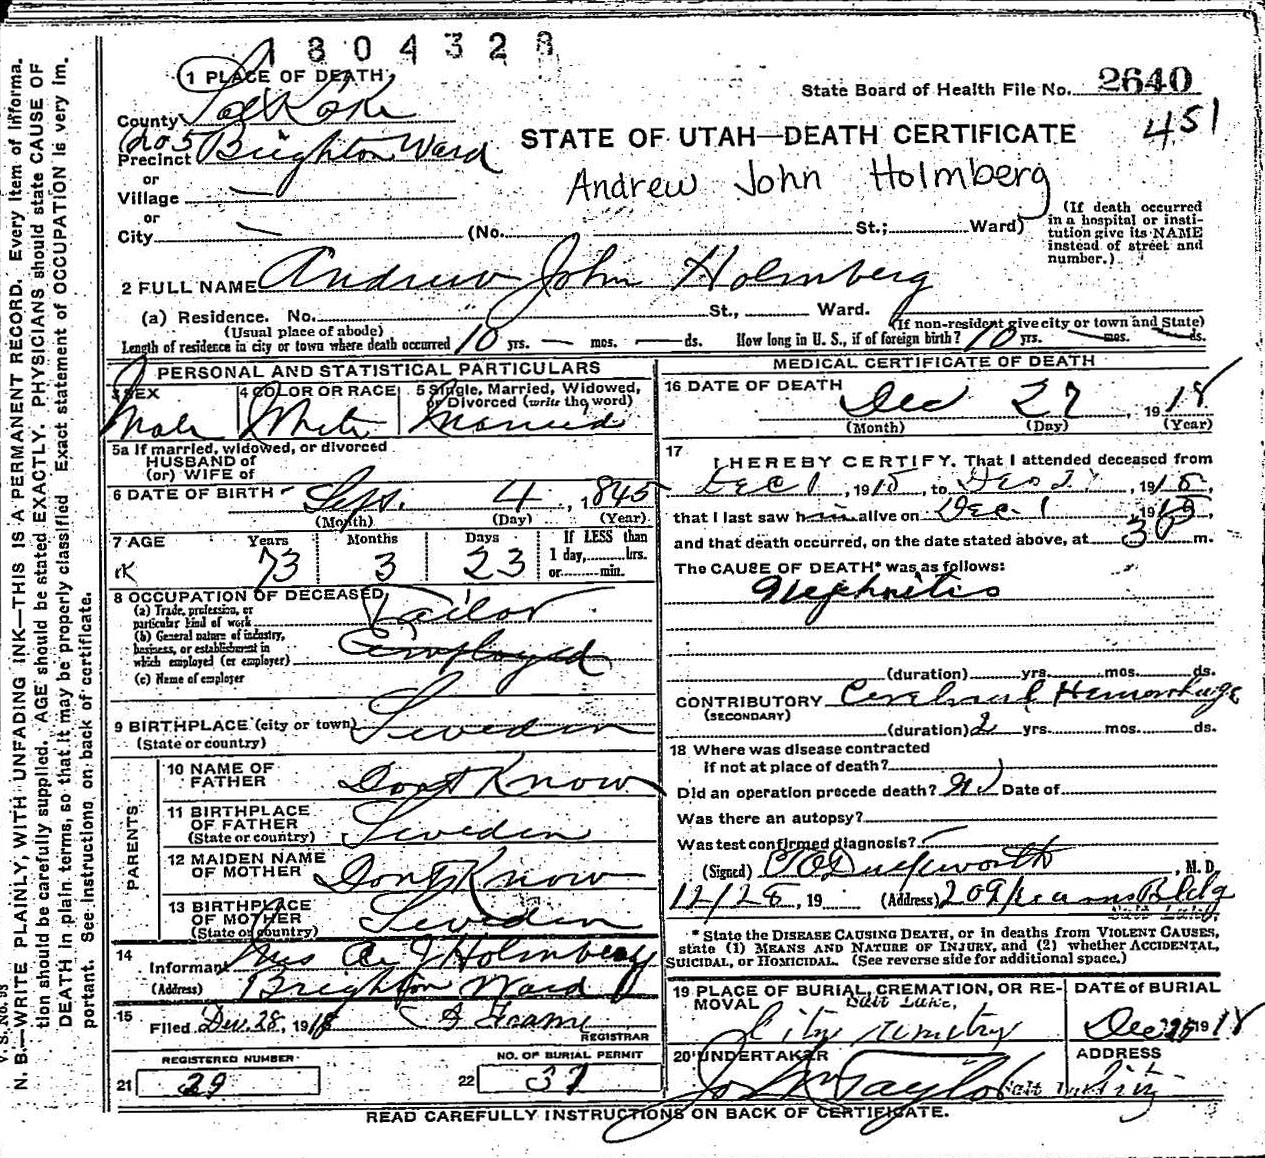 1804328
1 PLACE OF DEATH
State Board of Health File No. 2640
451
County Salt Lake
STATE OF UTAH—DEATH CERTIFICATE
(No 5
Precinct Brighton Ward
or
Andrew John Holmberg
Village —
or
City — (No. St.; Ward)
(If death occurred
in a hospital or insti-
tution give its NAME
instead of street and
number.)
2 FULL NAME Andrew John Holmberg
(a) Residence. No. St., Ward.
(Usual place of abode) (If non-resident give city or town and State)
Length of residence in city or town where death occurred 10 yrs. — mos. — ds. How long in U. S., if of foreign birth? 10 yrs. — mos. — ds.
PERSONAL AND STATISTICAL PARTICULARS
3 SEX
Male
4 COLOR OR RACE
White
5 Single, Married, Widowed,
or Divorced (write the word)
Married
5a If married, widowed, or divorced
HUSBAND of
(or) WIFE of
6 DATE OF BIRTH Sept. 4, 1845
(Month) (Day) (Year)
7 AGE Years Months Days If LESS than
1 day, hrs.
or min.
73 3 23
8 OCCUPATION OF DECEASED
(a) Trade, profession, or
particular kind of work Tailor
(b) General nature of industry,
business, or establishment in
which employed (or employer) Employed
(c) Name of employer
9 BIRTHPLACE (city or town) Sweden
(State or country)
PARENTS
10 NAME OF
FATHER Dont Know
11 BIRTHPLACE
OF FATHER Sweden
(State or country)
12 MAIDEN NAME
OF MOTHER Dont Know
13 BIRTHPLACE
OF MOTHER Sweden
(State or country)
14
Informant Mrs A. J Holmberg
(Address) Brighton Ward
15
Filed Dec. 28, 1918
REGISTRAR
REGISTERED NUMBER
21 29
NO. OF BURIAL PERMIT
22 37
MEDICAL CERTIFICATE OF DEATH
16 DATE OF DEATH
Dec 27, 1918
(Month) (Day) (Year)
17
I HEREBY CERTIFY, That I attended deceased from
Dec 1, 1918, to Dec 27, 1918,
that I last saw him alive on Dec. 1 1918
and that death occurred, on the date stated above, at 30 m.
The CAUSE OF DEATH* was as follows:
Nephritis
(duration) yrs. mos. ds.
CONTRIBUTORY Cerebral Hemorrhage
(SECONDARY)
(duration) 2 yrs. mos. ds.
18 Where was disease contracted
if not at place of death?
Did an operation precede death? No Date of
Was there an autopsy?
Was test confirmed diagnosis?
(Signed) Duckworth, M. D.
12/28, 19 (Address) 209 Kearns Bldg
Salt Lake.
* State the DISEASE CAUSING DEATH, or in deaths from VIOLENT CAUSES,
state (1) MEANS AND NATURE OF INJURY, and (2) whether ACCIDENTAL,
SUICIDAL, or HOMICIDAL. (See reverse side for additional space.)
19 PLACE OF BURIAL, CREMATION, OR RE-
MOVAL Salt Lake,
City Cemetry
DATE of BURIAL
Dec 1918
20 UNDERTAKER
Taylor
ADDRESS
Salt Lake City
READ CAREFULLY INSTRUCTIONS ON BACK OF CERTIFICATE.
V. S. No. 98
N. B.—WRITE PLAINLY, WITH UNFADING INK—THIS IS A PERMANENT RECORD. Every item of informa-
tion should be carefully supplied. AGE should be stated EXACTLY. PHYSICIANS should state CAUSE OF
DEATH in plain terms, so that it may be properly classified. Exact statement of OCCUPATION is very im-
portant. See instructions on back of certificate.